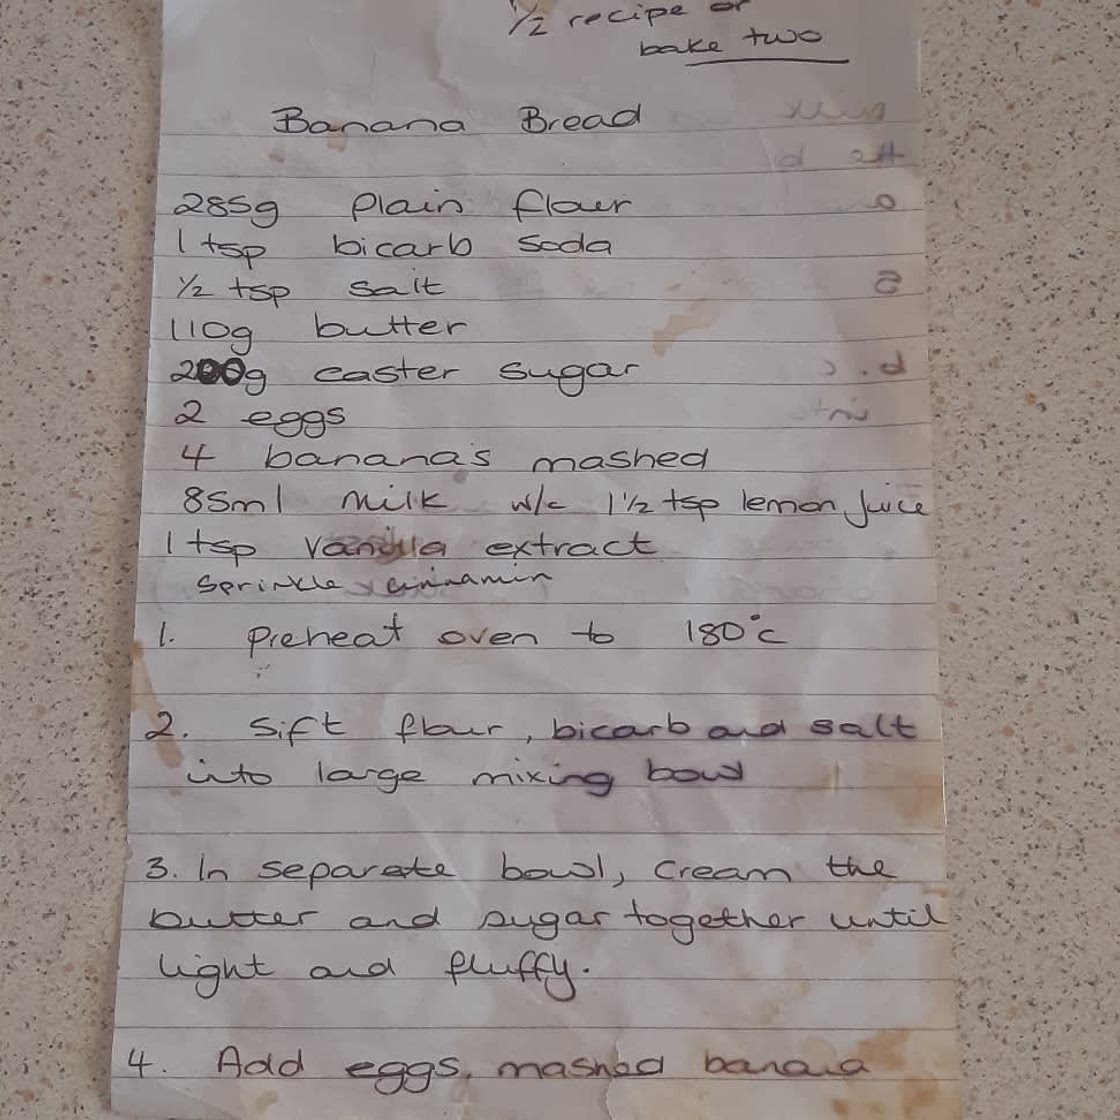 1/2 recipe or
bake two
Banana Bread
285g plain flour
1 tsp bicarb soda
1/2 tsp salt
110g butter
200g caster sugar
2 eggs
4 banana's mashed
85ml milk w/c 1 1/2 tsp lemon juice
1 tsp vanilla extract
sprinkle cinnamin
1. Preheat oven to 180°c
2. Sift flour, bicarb and salt
into large mixing bowl
3. In separate bowl, cream the
butter and sugar together until
light and fluffy.
4. Add eggs, mashed banana